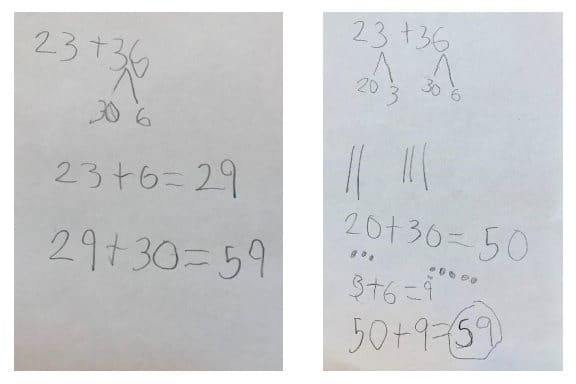 23+36
30 6
23+6=29
29+30=59
23+36
20 3 30 6
20+30=50
3+6=9
50+9=59